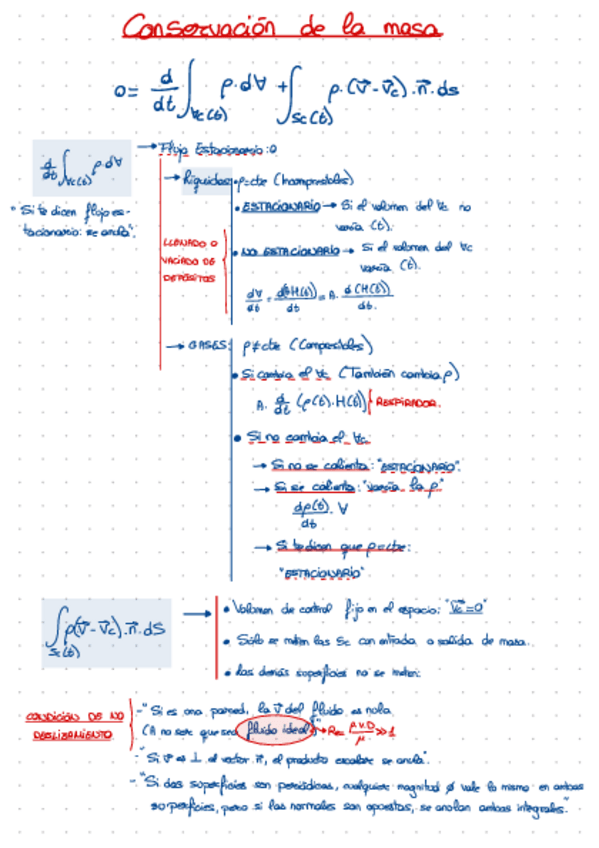 Conservación de la masa
0 = d/dt ∫Vc(t) ρ·dV + ∫Sc(t) ρ·(v⃗ - v⃗c)·n⃗·ds
d/dt ∫Vc(t) ρ dV
→ Flujo Estacionario: 0
"Si te dicen flujo es-
tacionario: se anula".
→ líquidos: ρ=cte (Incompresibles)
• ESTACIONARIO → Si el volumen del Vc no
varía (t).
LLENADO O
VACIADO DE
DEPÓSITOS
• NO ESTACIONARIO → Si el volumen del Vc
varía (t).
dV/dt = d(A·H(t))/dt = A· d(H(t))/dt.
→ GASES: ρ≠cte (Compresibles)
• Si cambia el Vc (También cambia ρ)
A· d/dt (ρ(t)·H(t)) RESPIRADOR.
• Si no cambia el Vc
→ Si no se calienta: "ESTACIONARIO".
→ Si se calienta: "varía la ρ"
dρ(t)/dt · V
→ Si te dicen que ρ=cte:
"ESTACIONARIO"
∫Sc(t) ρ(v⃗ - v⃗c)·n⃗·dS →
• Volumen de control fijo en el espacio: "v⃗c=0"
• Sólo se miten las Sc con entrada o salida de masa.
• las demás superficies no se miten.
CONDICIÓN DE NO
DESLIZAMIENTO
- "Si es una pared, la v⃗ del fluido es nula.
(A no ser que sea fluido ideal)" → Re = ρ·v·D/μ >> 1
- "Si v⃗ es ⊥ al vector n⃗, el producto escalar se anula".
- "Si dos superficies son periódicas, cualquier magnitud ø vale lo mismo en ambas
superficies, pero si las normales son opuestas, se anulan ambas integrales."